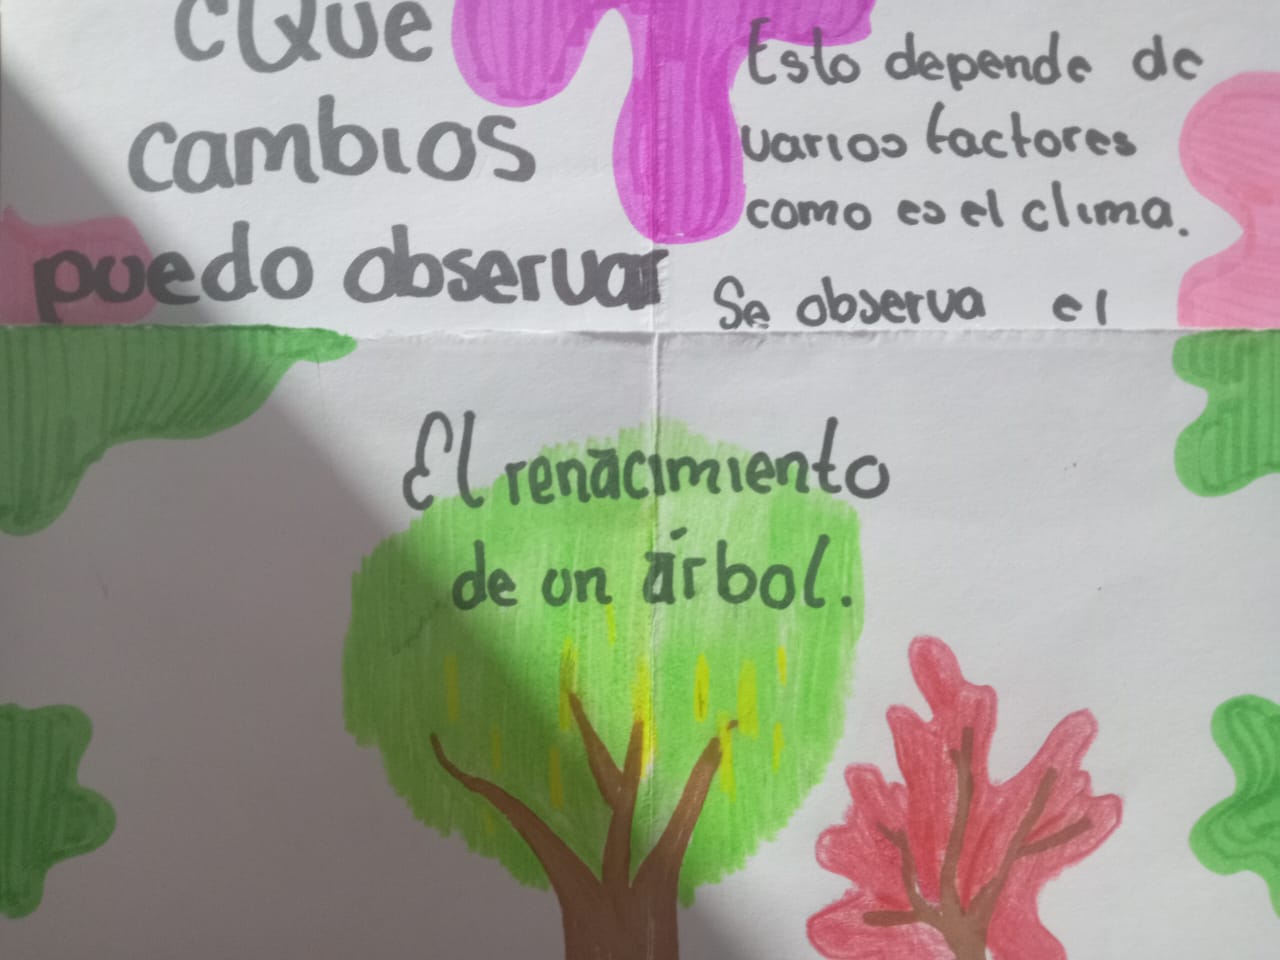 ¿Que
cambios
puedo observar
Esto depende de
varios factores
como es el clima.
Se observa el
El renacimiento
de un árbol.